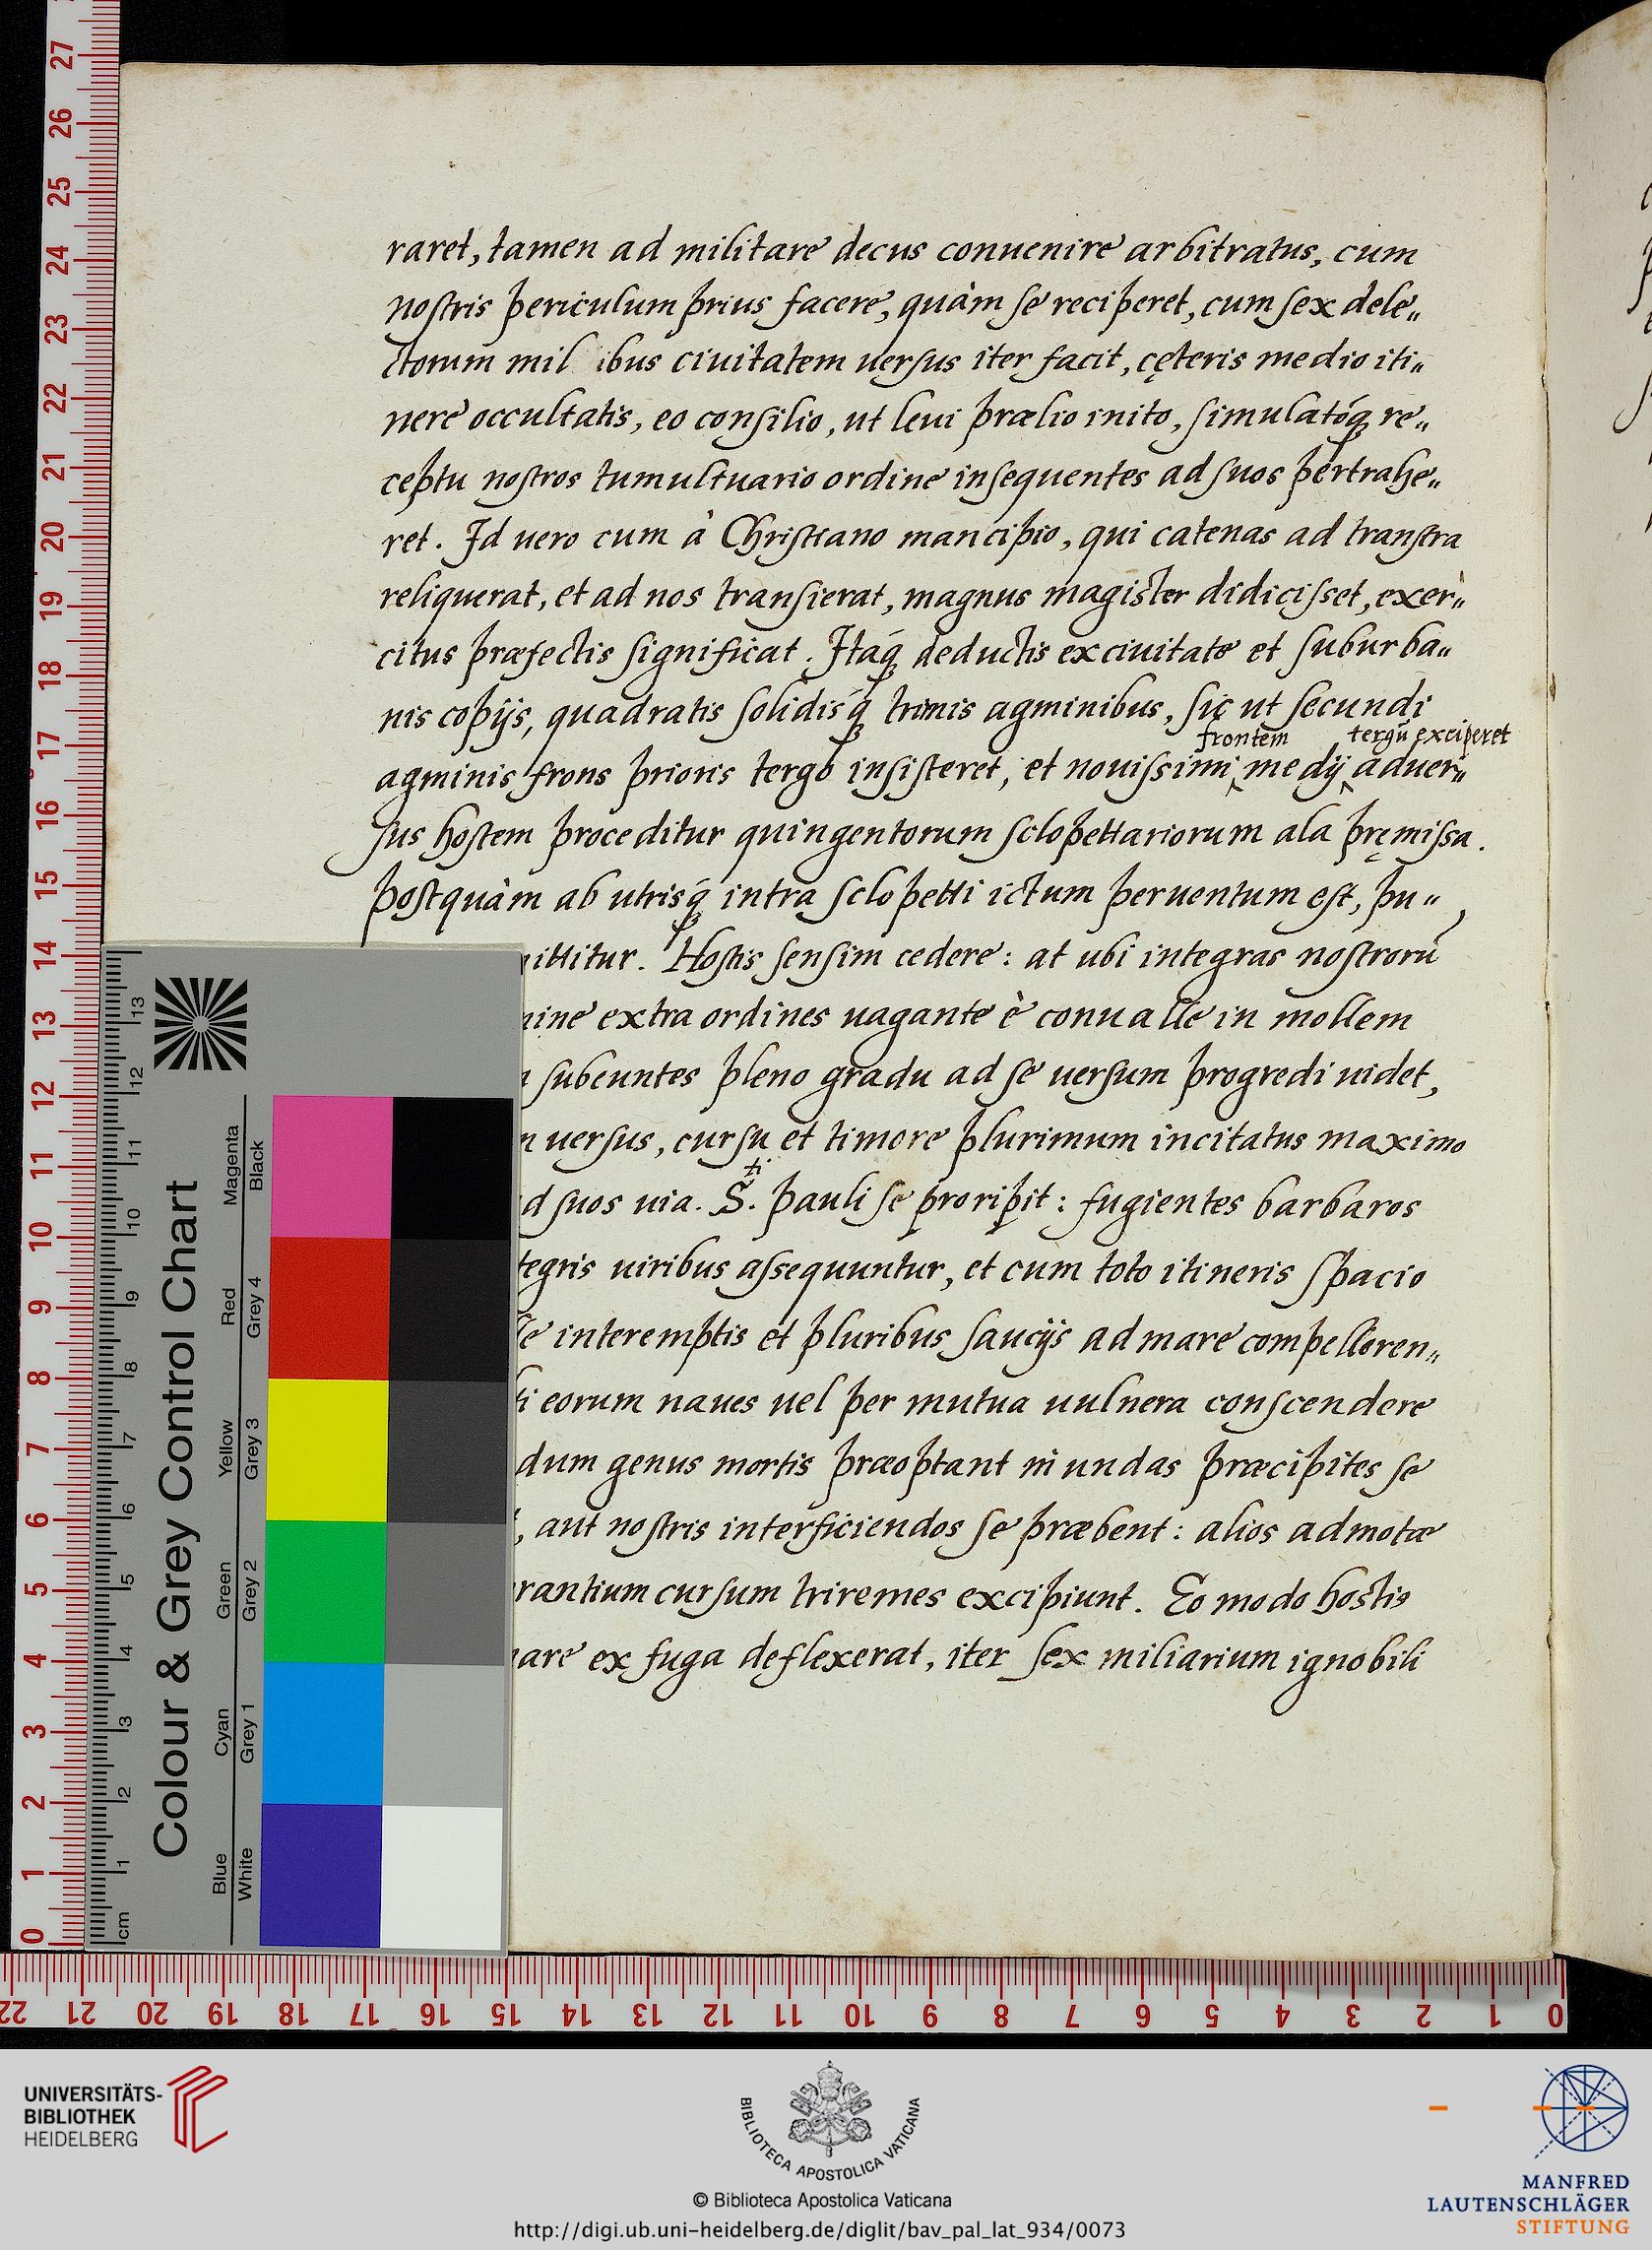 raret, tamen ad militare decus conuenire arbitratus, cum
nostris periculum prius facere, quàm se reciperet, cum sex dele„
ctorum mil ibus ciuitatem uersus iter facit, cęteris medio iti„
nere occultatis, eo consilio, ut leui prælio inito, simulatóq̧ re„
ceptu nostros tumultuario ordine insequentes ad suos pertrahe„
ret. Id uero cum à Christiano mancipio, qui catenas ad transtra
reliquerat, et ad nos transierat, magnus magister didicisset, exer„
citus præfectis significat. Itaq́ deductis ex ciuitate et suburba„
nis copijs, quadratis solidisq́ trinis agminibus, sic ut secundi
frontem tergū exciperet
agminis frons prioris tergo insisteret, et nouissimi medij aduer„
sus hostem proceditur quingentorum sclopettariorum ala pręmissa.
postquàm ab utrisq́ intra sclopetti ictum peruentum est, pu„
ittitur. Hostis sensim cedere: at ubi integras nostrorū
ine extra ordines uagante è conualle in mollem
subeuntes pleno gradu ad se uersum progredi uidet,
uersus, cursu et timore plurimum incitatus maximo
d suos uia. S.ti pauli se proripit: fugientes barbaros
tegris uiribus assequuntur, et cum toto itineris spacio
le interemptis et pluribus saucijs ad mare compelleren„
ti eorum naues uel per mutua uulnera conscendere
dum genus mortis præoptant in undas præcipites se
, aut nostris interficiendos se præbent: alios admotæ
rantium cursum triremes excipiunt. Eo modo hostis
are ex fuga deflexerat, iter sex miliarium ignobili
27
26
25
24
23
22
21
20
19
18
17
16
15
14
13
12
11
10
9
8
7
6
5
4
3
2
1
0
Colour & Grey Control Chart
Magenta
Black
Red
Grey 4
Yellow
Grey 3
Green
Grey 2
Cyan
Grey 1
Blue
White
13
12
11
10
9
8
7
6
5
4
3
2
1
cm
22 21 20 19 18 17 16 15 14 13 12 11 10 9 8 7 6 5 4 3 2 1 0
UNIVERSITÄTS-
BIBLIOTHEK
HEIDELBERG
BIBLIOTECA APOSTOLICA VATICANA
© Biblioteca Apostolica Vaticana
http://digi.ub.uni-heidelberg.de/diglit/bav_pal_lat_934/0073
MANFRED
LAUTENSCHLÄGER
STIFTUNG